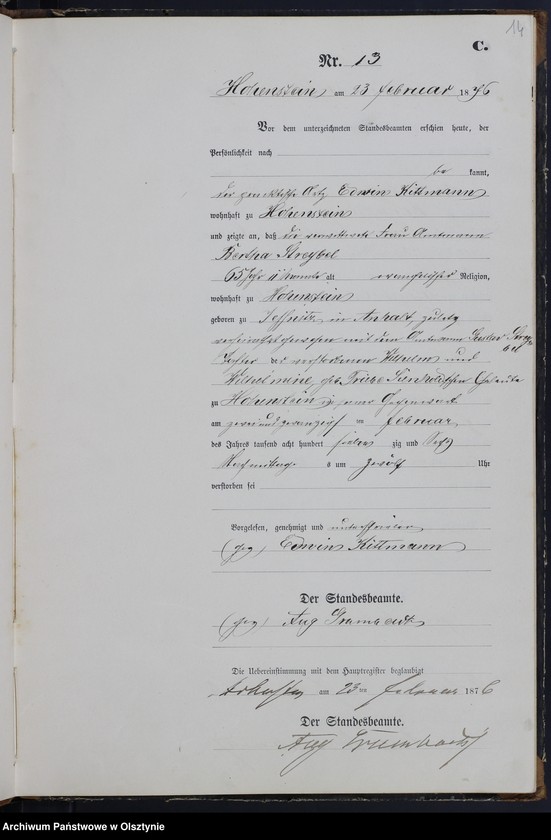 14
C.
Nr. 13
Hohenstein am 23 Februar 1876
Vor dem unterzeichneten Standesbeamten erschien heute, der
Persönlichkeit nach
be kannt,
der practische Arzt Edwin Kittmann
wohnhaft zu Hohenstein
und zeigte an, daß die verwittwete Frau Amtmann
Bertha Streybel
65 Jahr 11 Monate alt evangelischer Religion,
wohnhaft zu Hohenstein
geboren zu Jessnitz in Anhalt, zuletzt
verheirathet gewesen mit dem Amtmann
Tochter der verstorbenen Wilhelm und
Wilhelmine, geb. Eheleute
zu Hohenstein in seiner Gegenwart
am zweiundzwanzigsten Februar
des Jahres tausend acht hundert sieben zig und sechs
Nachmittags s um zwölf Uhr
verstorben sei
Vorgelesen, genehmigt und unterschrieben
(gez) Edwin Kittmann
Der Standesbeamte.
(gez) Aug
Die Uebereinstimmung mit dem Hauptregister beglaubigt
am 23ten Februar 1876
Der Standesbeamte.
Aug
Archiwum Państwowe w Olsztynie